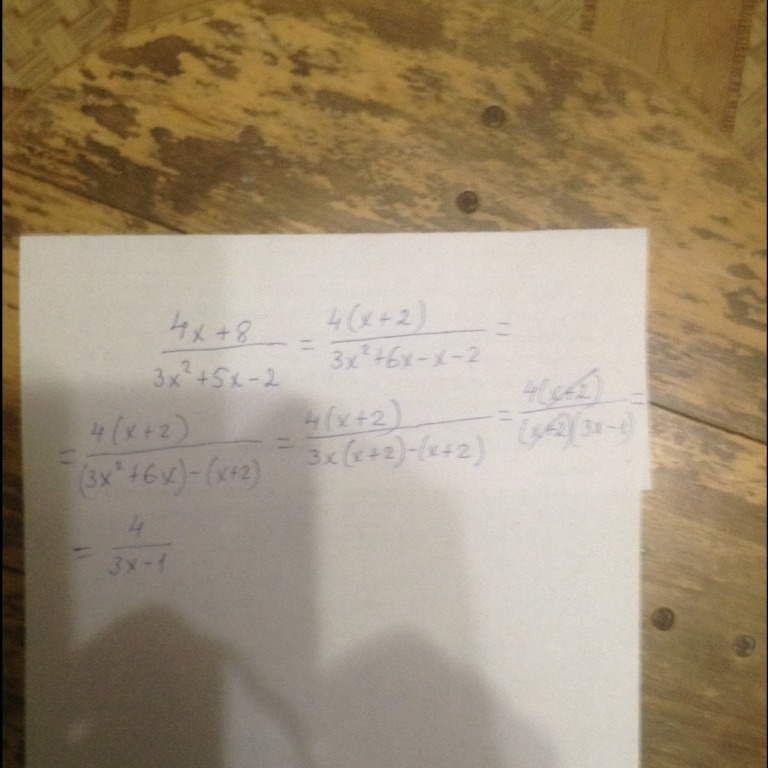 4x+8 / 3x²+5x-2 = 4(x+2) / 3x²+6x-x-2 =
= 4(x+2) / (3x²+6x)-(x+2) = 4(x+2) / 3x(x+2)-(x+2) = 4(x+2) / (x+2)(3x-1) =
= 4 / 3x-1